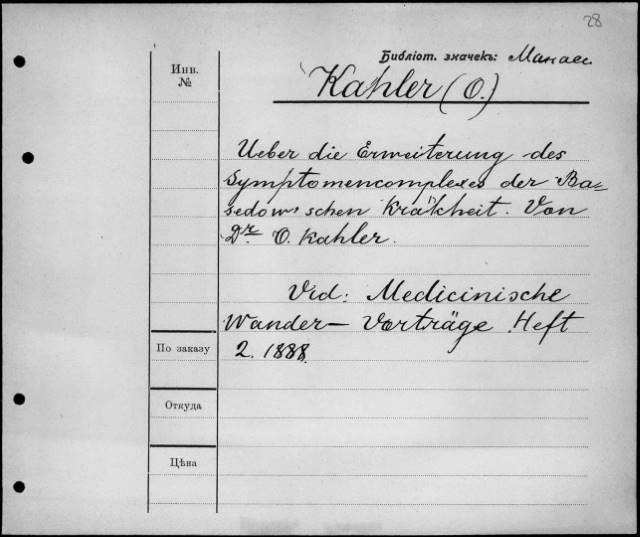 28
Библіот. значекъ:
Kahler (O.)
Инв.
№
Ueber die Erweiterung des
Symptomencomplexes der Ba=
sedow'schen Kräkheit. Von
Dr. O. Kahler.
Vid: Medicinische
Wander— Vorträge Heft
2. 1888.
По заказу
Откуда
Цѣна